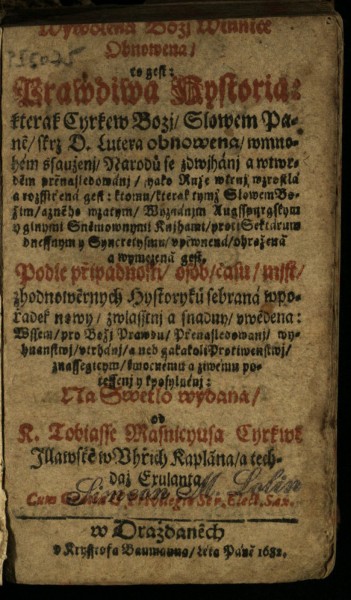 Wywolená Božj Winnice
Obnowena/
to gest:
Prawdiwa Hystoria:
kterak Cyrkew Božj/ Slowem Pa-
ně/ skrz D. Lutera obnowena/ w mno-
hém ssauženj/ Národů se zdwjhánj a wtwr-
dém přenásledowánj/ yako Růže w trnj wzrostla
a rozssířená gest: k tomu/ kterak tymž Slowem Bo-
žim/ a z něho wzatym/ Wyznánim Augsspurgskym
y ginymi Sněmownymi Knihami/ proti Sektárum
dnessnym y Syncretysmu/ vpewněna/ ohražená
a wymezená gest,
Podle připadnosti/ osob/ času/ mjst/
z hodnowěrnych Hystoryků sebraná w po-
řádek nowy/ zwlasstnj a snadny/ vwedena:
Wssem/ pro Božj Prawdu/ Přenasledowanj/ wy-
hnanstwj/ vtrhánj/ a neb gakakoli Protiwenstwj/
znassegicym/ k mocnému a ziwému po-
tessenj y k posylněnj:
Na Swetlo wydana/
od
K. Tobiasse Masnicyusa Cyrkwe
Jllawské w Vhřich Kaplána/ a tech-
daž Exulanta.
Cum Gratia & Privilegio Ser. Elect. Sax.
w Draždaněch
v Krystofa Baumanna/ Léta Páně 1682.